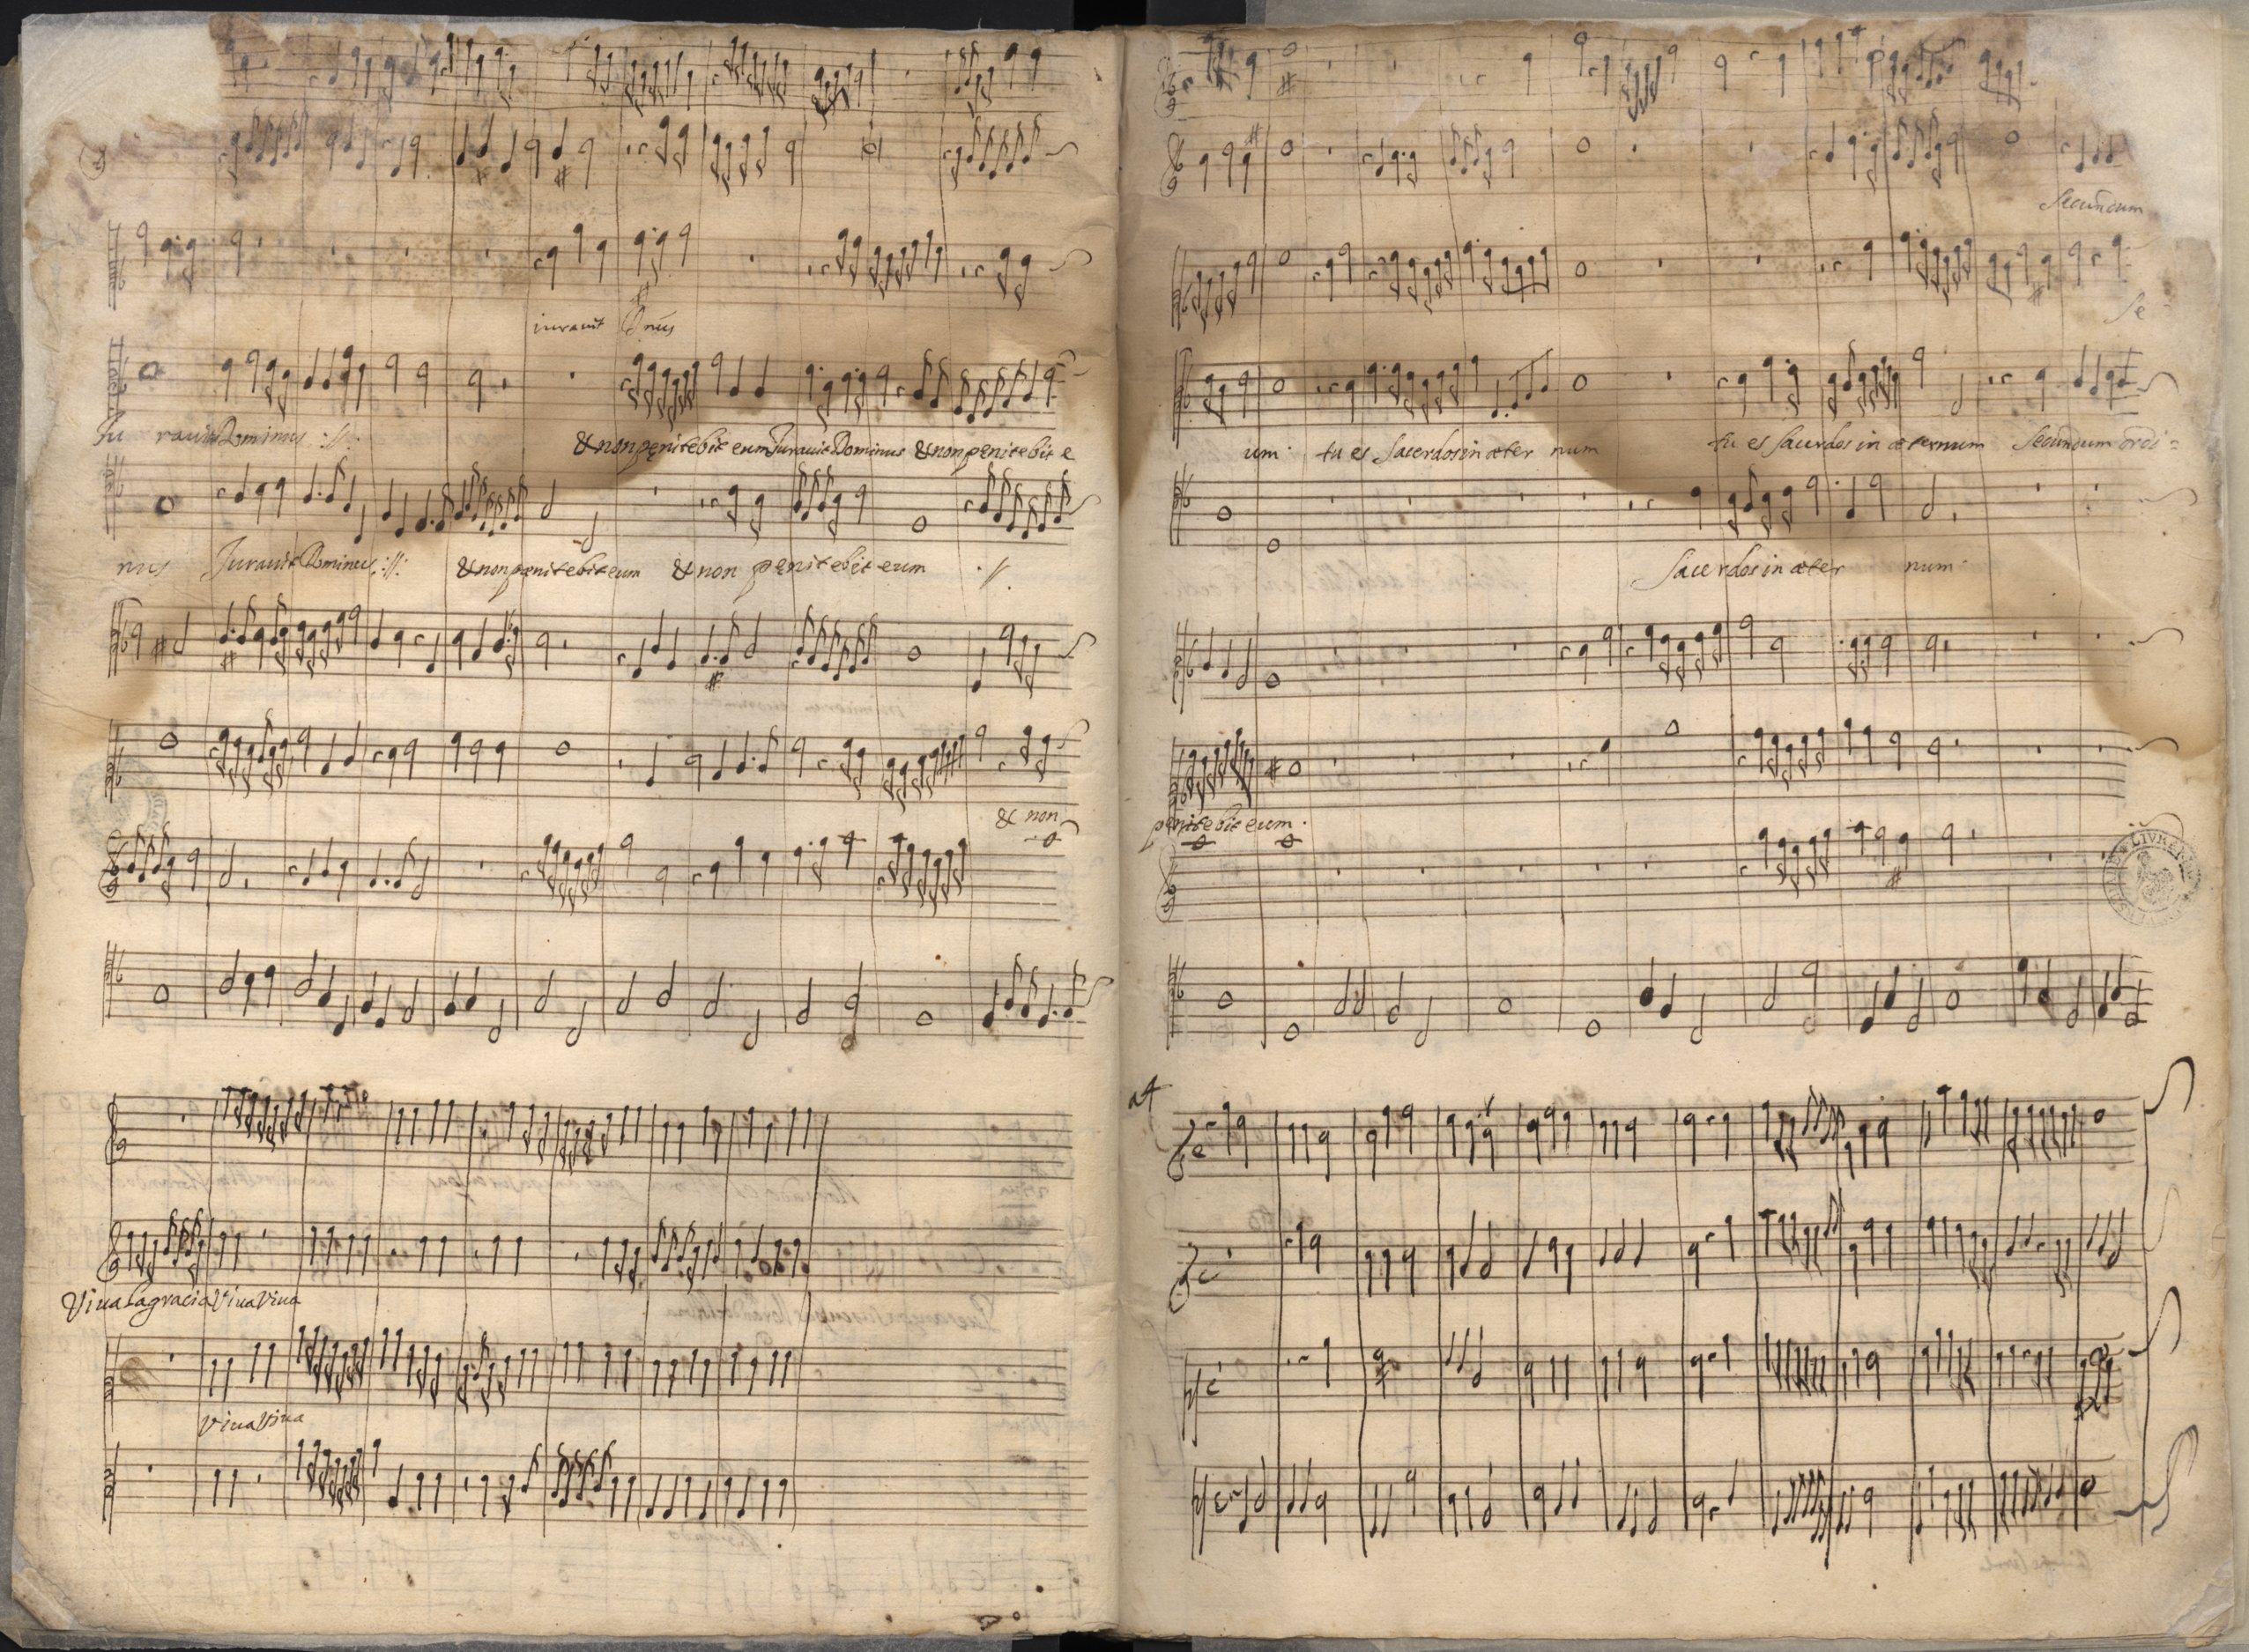 iurauit Dnus
Iu rauit Dominus ://:
& non pęnitebit eum Iurauit Dominus & non pęnitebit e
nus Iurauit Dominus ://: & non pœnitebit eum & non pęnitebit eum .//.
& non
Viua la gracia Viua Viua
Viua Viua
Secundum
Se
um. tu es Sacerdos in æter num tu es Sacerdos in æternum Secundum ordi=
Sacerdos in æter num.
penitebit eum.
a4